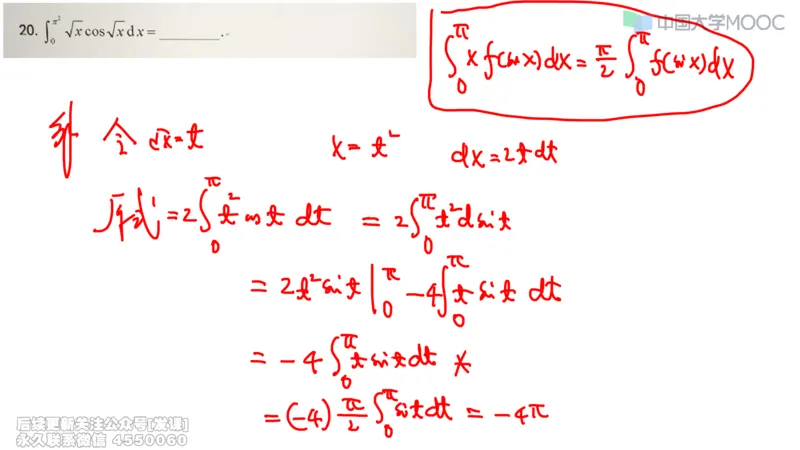 中国大学MOOC
20. ∫₀^{π²} √x cos √x dx = ______.
∫₀^π x f(sin x) dx = π/2 ∫₀^π f(sin x) dx
解 令 √x = t x = t² dx = 2t dt
原式 = 2∫₀^π t² cos t dt = 2∫₀^π t² d sin t
= 2t² sin t |₀^π − 4∫₀^π t sin t dt
= −4 ∫₀^π t sin t dt *
= (−4) π/2 ∫₀^π sin t dt = −4π
后续更新关注公众号[发课]
永久联系微信 4550060